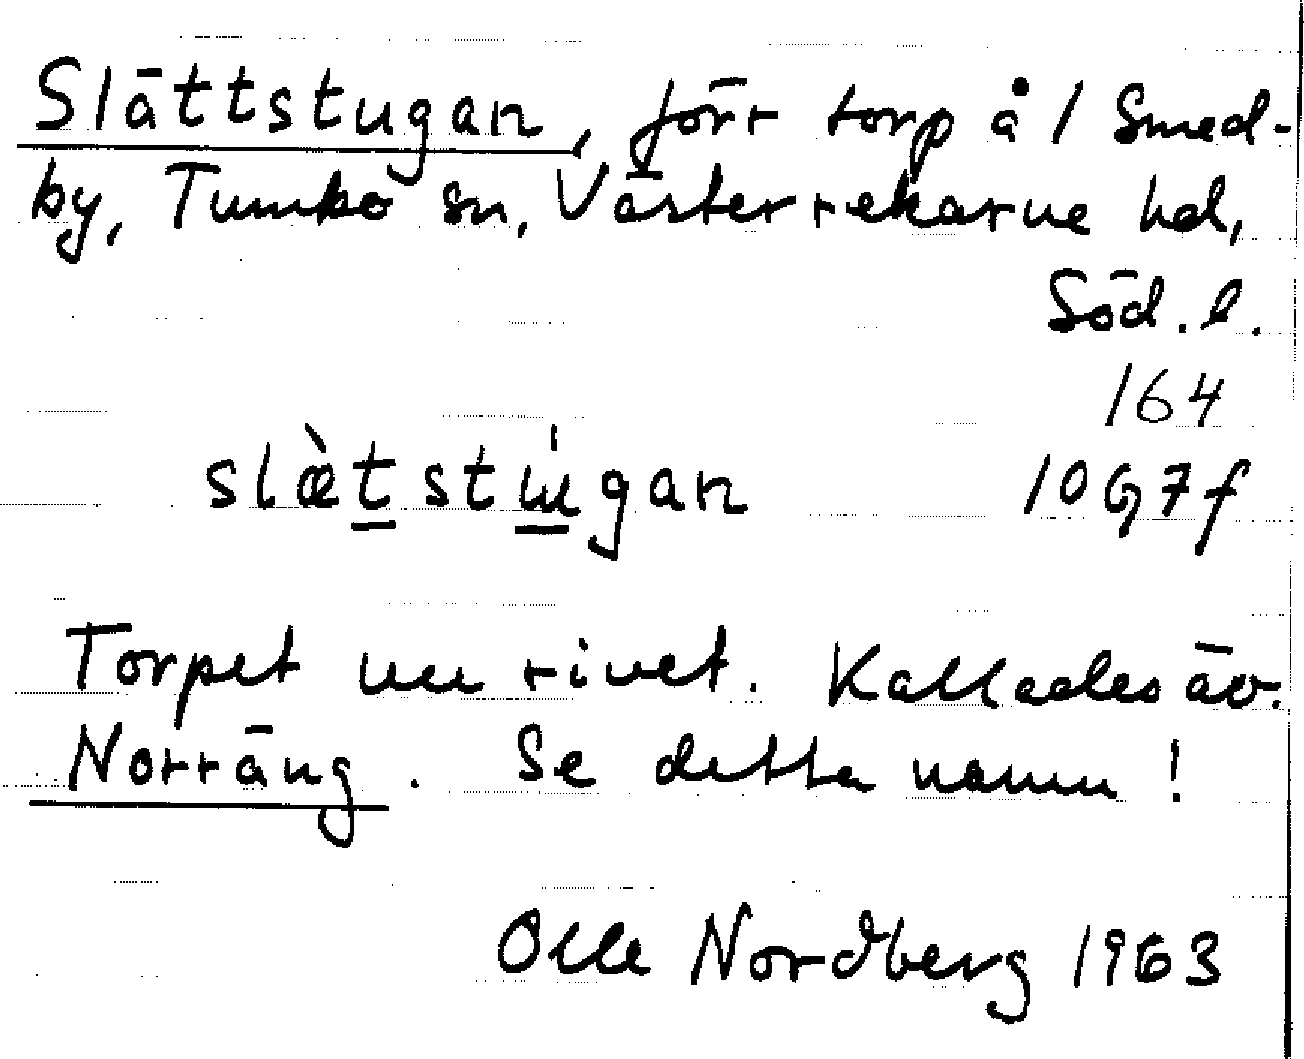 Slättstugan, förr torp å 1 Smed-
by, Tumbo sn, Västerrekarne hd,
Söd. l.
164
slæ̀t̲stɯ̲́gan 10 G 7 f
Torpet nu rivet. Kallades äv.
Norräng. Se detta namn!
Olle Nordberg 1963